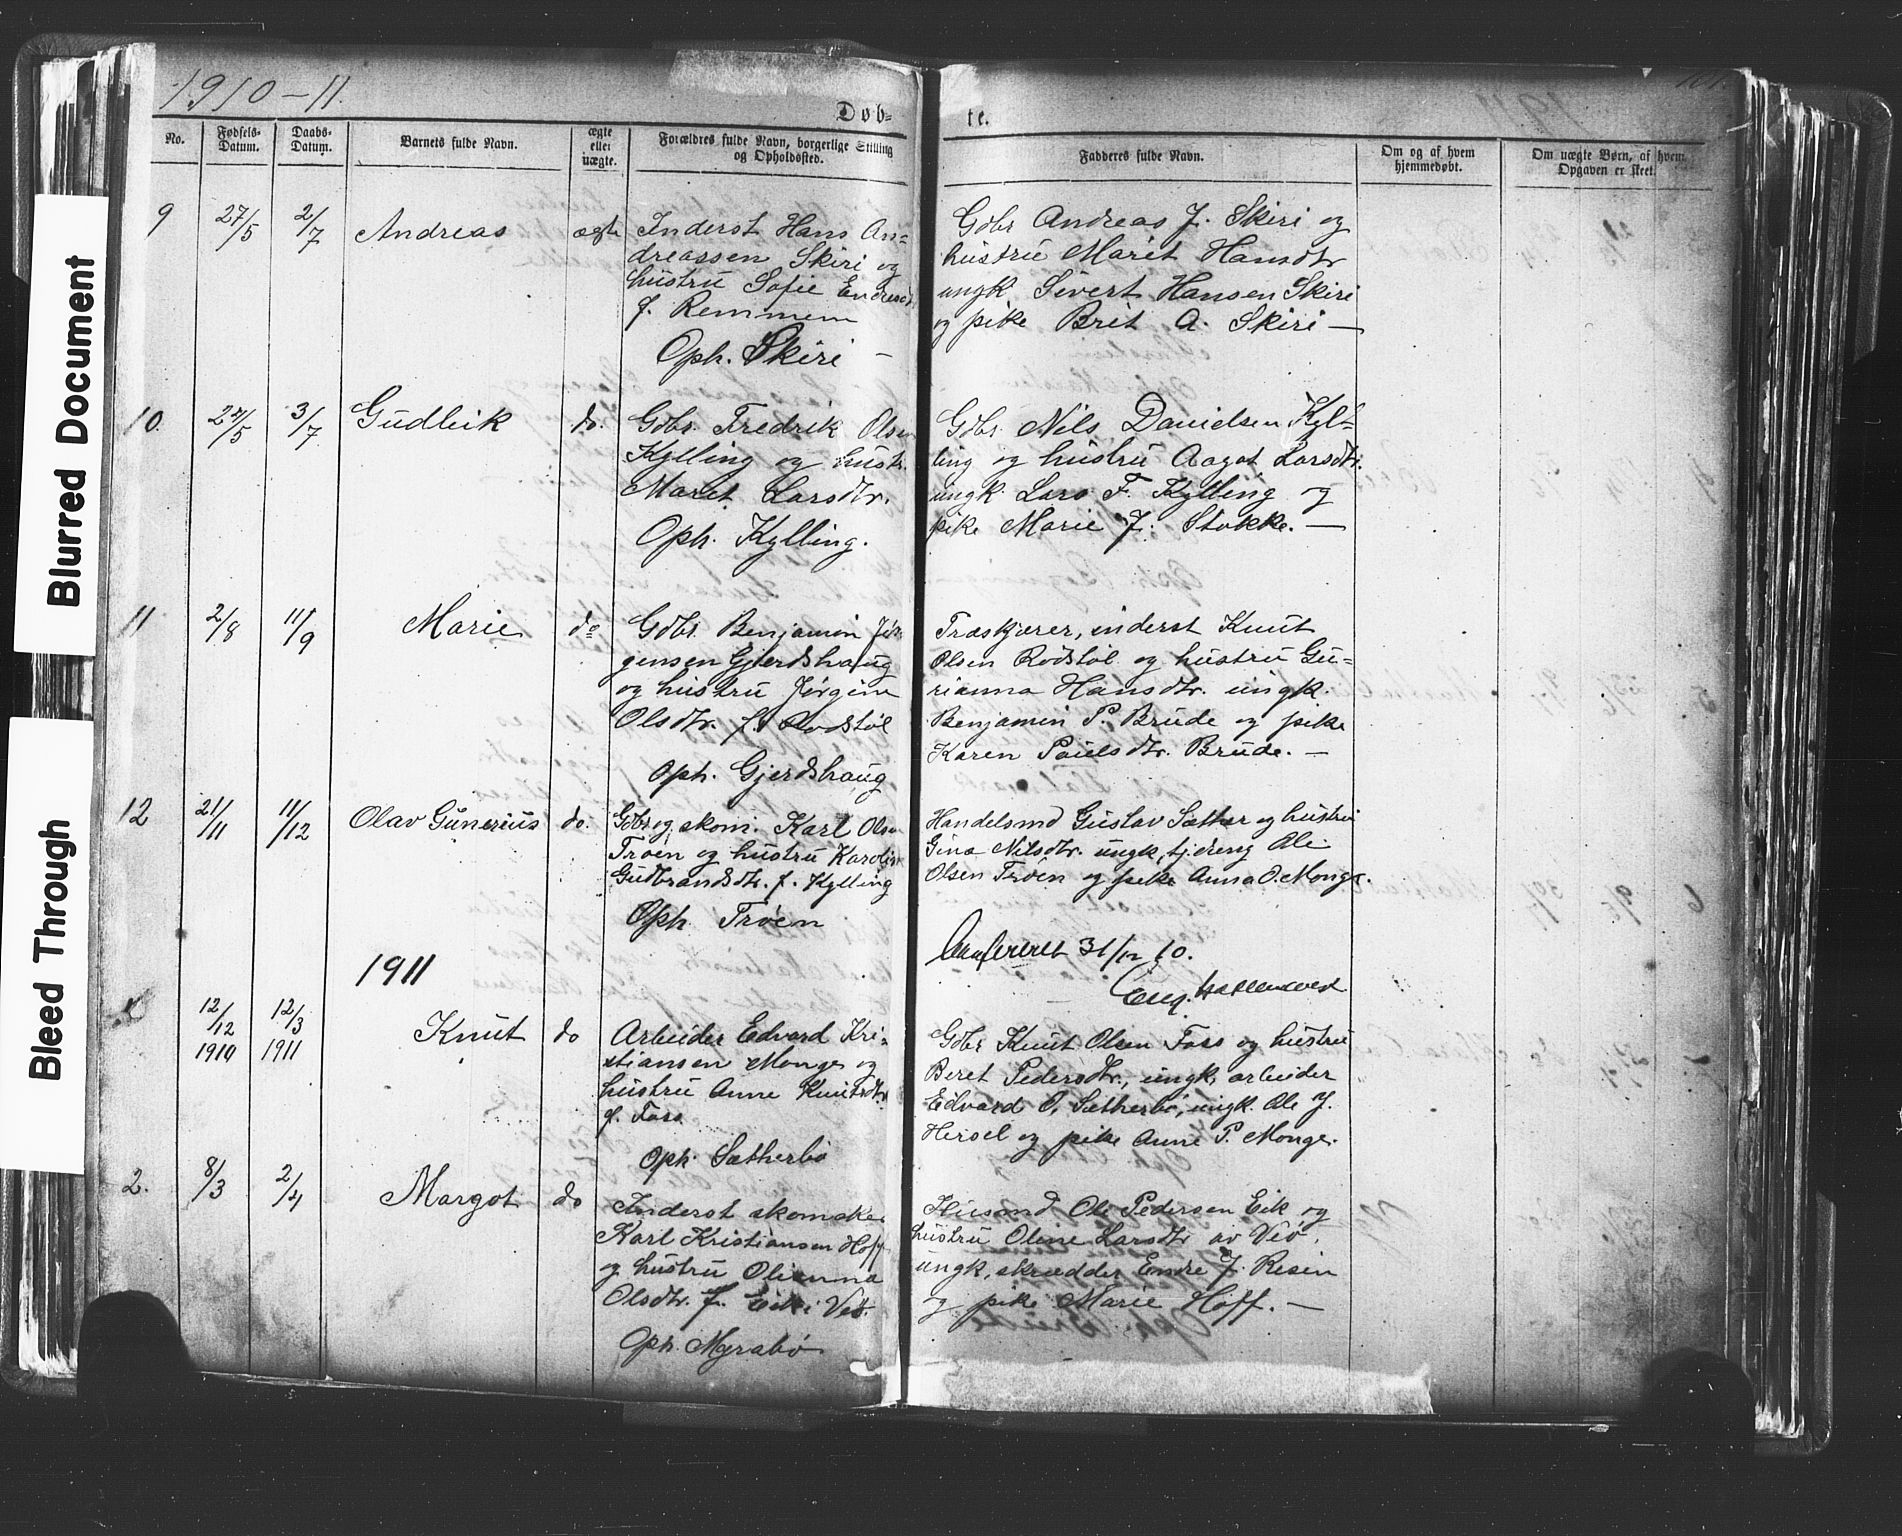 1910-11.
Døb-
te.
101.
No.
Fødsels-
Datum.
Daabs-
Datum.
Barnets fulde Navn.
ægte
eller
uægte.
Forældres fulde Navn, borgerlige Stilling
og Opholdssted.
Fadderes fulde Navn.
Om og af hvem
hjemmedøbt.
Om uægte Børn, af hvem
Opgaven er skeet.
Blurred Document
Bleed Through
9 27/5 2/7 Andreas ægte
Inderst Hans An=
dreassen Skiri og
hustru Sofie Endresdt
f. Remmem
Oph. Skiri -
Gdbr Andreas J. Skiri og
hustru Marit Hansdtr
ungk Sivert Hansen Skiri
og pike Brit A. Skiri -
10. 22/5 3/7 Gudleik do.
Gdbr. Fredrik Olsen
Kylling og hustr.
Maret Larsdtr.
Oph. Kylling.
Gdbr. Nils Danielsen Kyl-
ling og hustru Aagot Larsdtr.
ungk. Lars F. Kylling og
pike Marie J. Stokke. -
11 2/8 11/9 Marie do
Gdbr. Benjamin Jør-
gensen Gjerdshaug
og hustru Jørgine
Olsdtr. f. Rødstøl
Oph. Gjerdshaug
Træskjærer, inderst Knut
Olsen Rødstøl og hustru Gu=
rianna Hansdtr. ungk.
Benjamin P. Brude og pike
Karen Paulsdtr. Brude. -
12 21/11 11/12 Olav Gunerius do.
Gdbr og skom. Karl Olsen
Trøen og hustru Karoline
Gudbrandsdtr. f. Kylling
Oph Trøen
Handelsmd Gustav Sæther og hustru
Gina Nilsdtr. ungk, tj.dreng Ole
Olsen Trøen og pike Anna O. Monge.
1911
Confereret 31/12 10.
Eug.
12/12 1910 12/3 1911 Knut do
Arbeider Edvard Kri-
stiansen Monge og
hustru Anne Knutsdtr
f. Foss
Oph. Sætherbø
Gdbr Knut Olsen Foss og hustru
Beret Pedersdtr., ungk, arbeider
Edvard O. Sætherbø, ungk. Ole J.
Hersel og pike Anne P. Monge.
2. 8/3 2/4 Margot do
Inderst skomaker
Karl Kristiansen Hoff
og hustru Olianna
Olsdtr. f. Eik i Veø.
Oph. Myrabø
Husmd Ole Pedersen Eik og
hustru Oline Larsdtr av Veø,
ungk, skrædder Endre J. Risen
og pike Marie Hoff. -